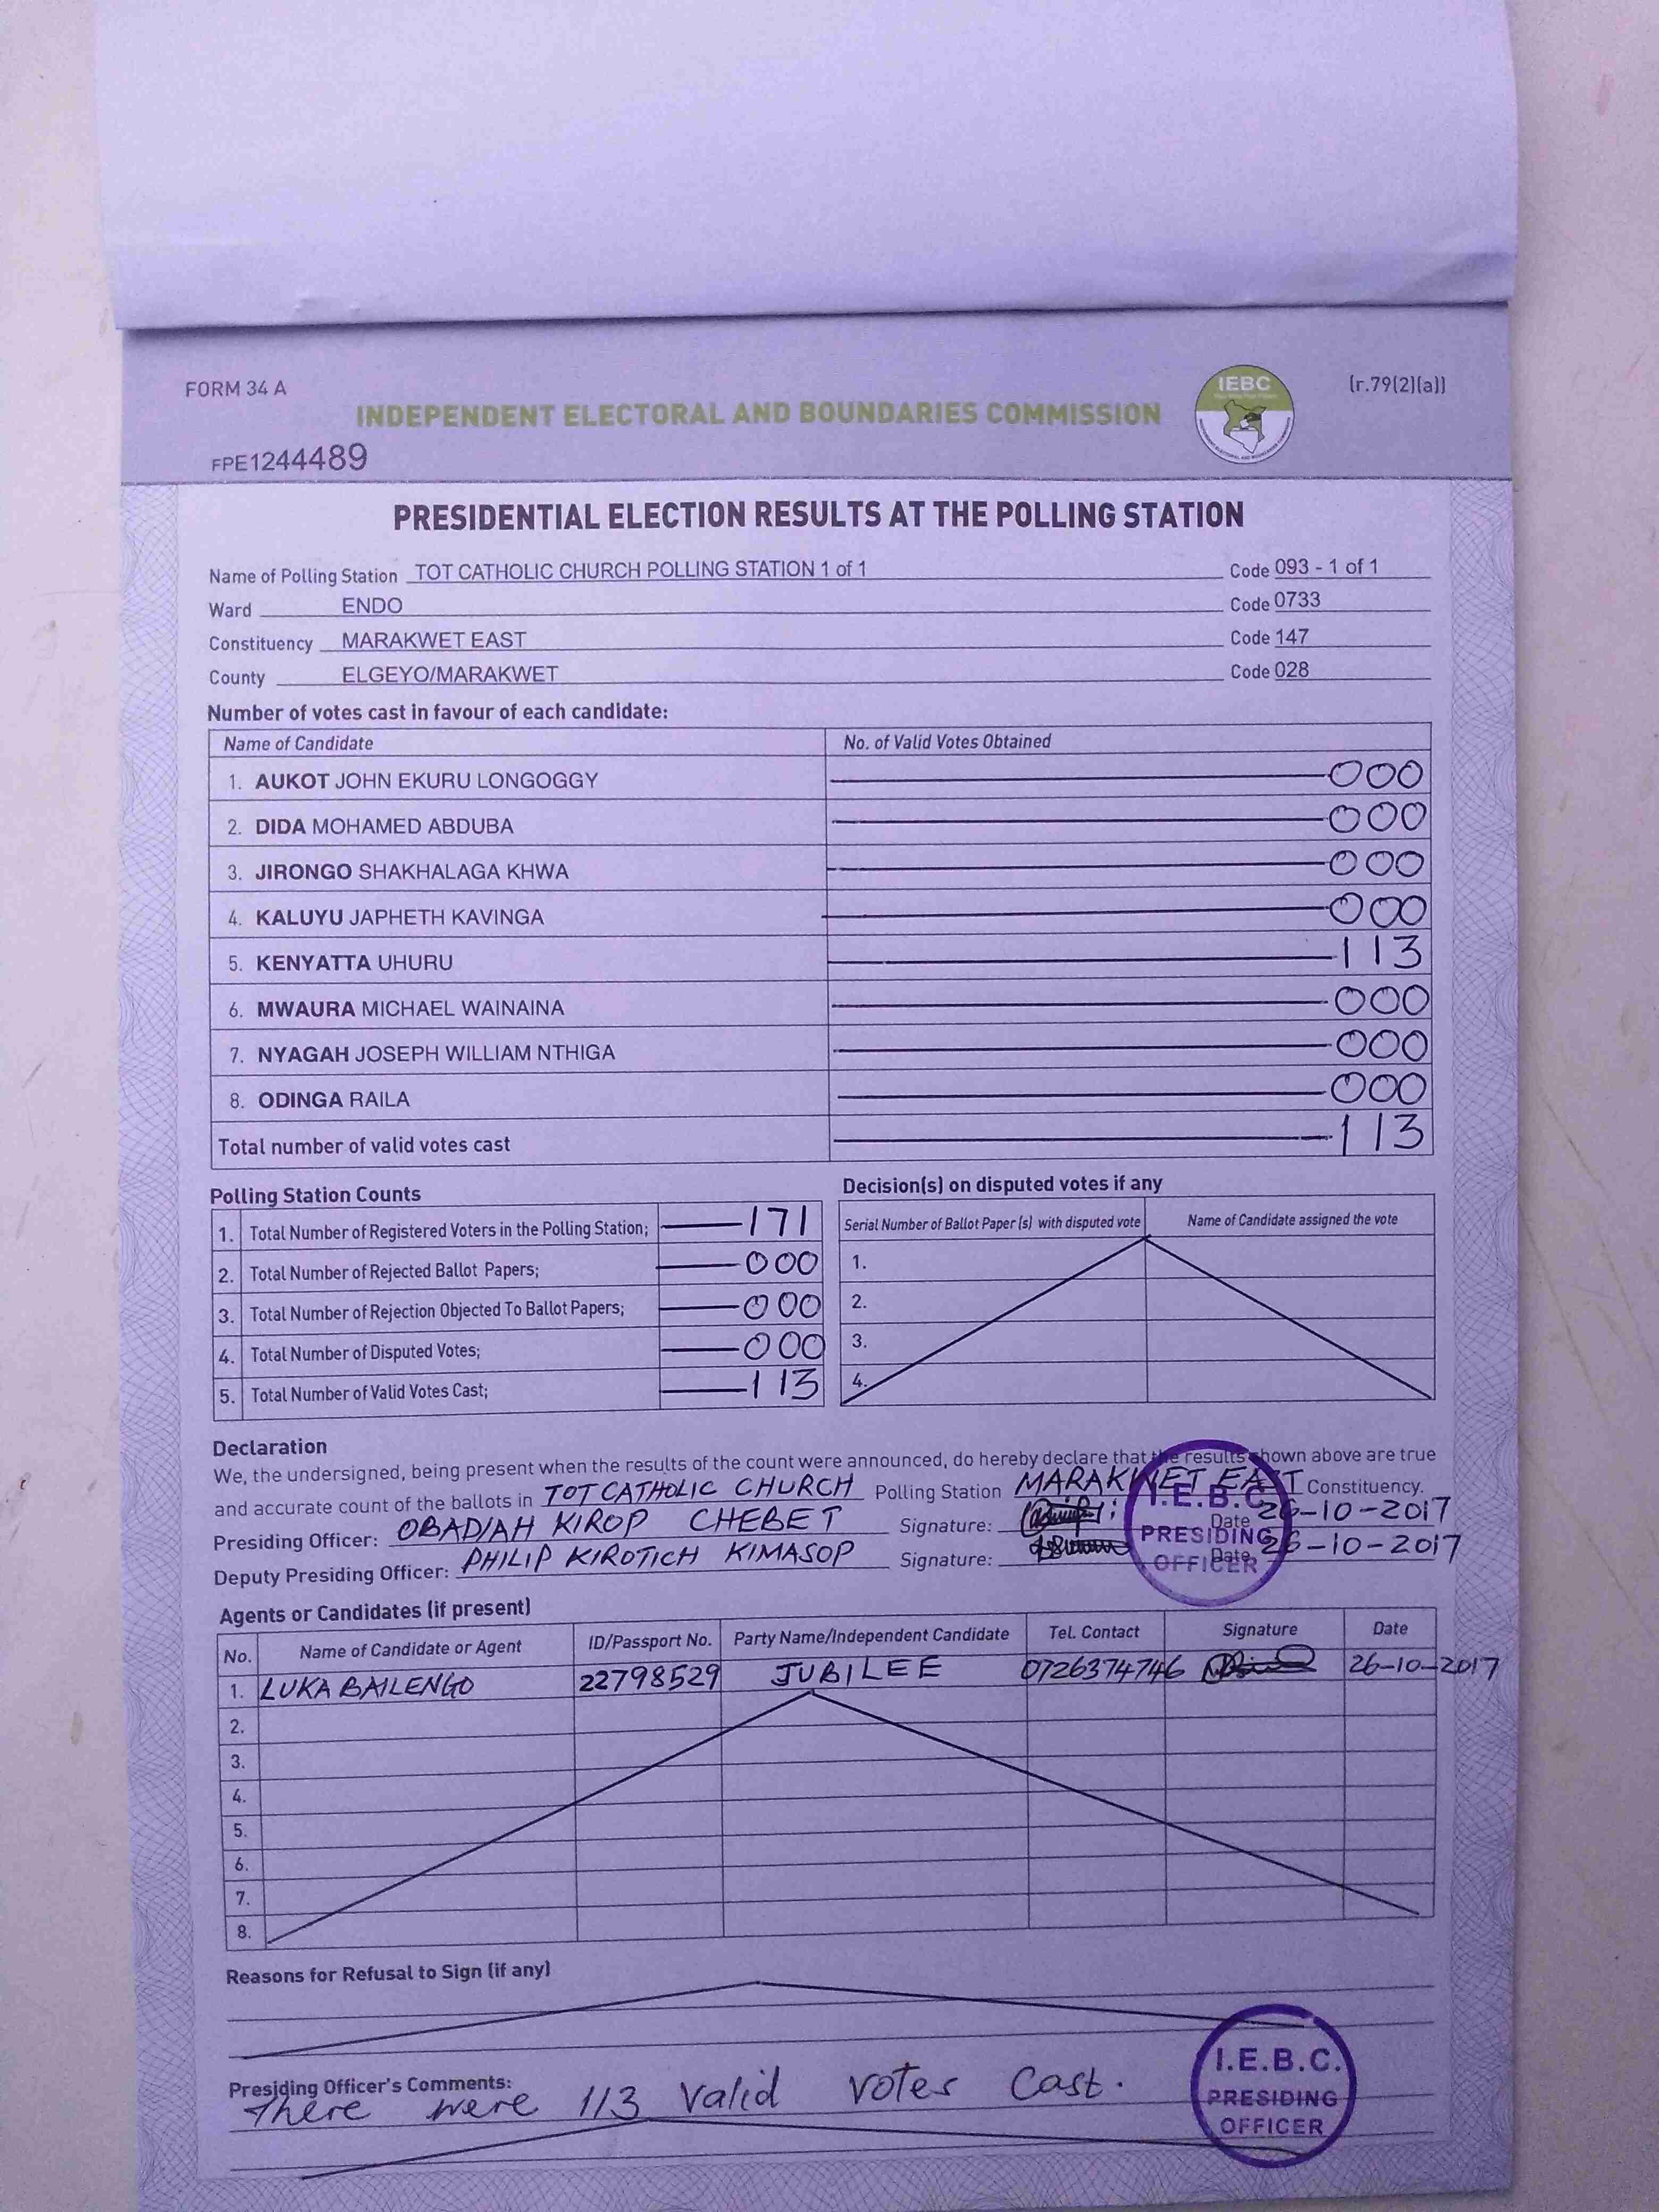 FORM 34 A
(r.79(2)(a))
IEBC
INDEPENDENT ELECTORAL AND BOUNDARIES COMMISSION
FPE1244489
PRESIDENTIAL ELECTION RESULTS AT THE POLLING STATION
Name of Polling Station TOT CATHOLIC CHURCH POLLING STATION 1 of 1 Code 093 - 1 of 1
Ward ENDO Code 0733
Constituency MARAKWET EAST Code 147
County ELGEYO/MARAKWET Code 028
Number of votes cast in favour of each candidate:
Name of Candidate No. of Valid Votes Obtained
1. AUKOT JOHN EKURU LONGOGGY 000
2. DIDA MOHAMED ABDUBA 000
3. JIRONGO SHAKHALAGA KHWA 000
4. KALUYU JAPHETH KAVINGA 000
5. KENYATTA UHURU 113
6. MWAURA MICHAEL WAINAINA 000
7. NYAGAH JOSEPH WILLIAM NTHIGA 000
8. ODINGA RAILA 000
Total number of valid votes cast 113
Polling Station Counts
1. Total Number of Registered Voters in the Polling Station; 171
2. Total Number of Rejected Ballot Papers; 000
3. Total Number of Rejection Objected To Ballot Papers; 000
4. Total Number of Disputed Votes; 000
5. Total Number of Valid Votes Cast; 113
Decision(s) on disputed votes if any
Serial Number of Ballot Paper (s) with disputed vote Name of Candidate assigned the vote
1.
2.
3.
4.
Declaration
We, the undersigned, being present when the results of the count were announced, do hereby declare that the results shown above are true
and accurate count of the ballots in TOT CATHOLIC CHURCH Polling Station MARAKWET EAST Constituency.
Presiding Officer: OBADIAH KIROP CHEBET Signature: Date 26-10-2017
Deputy Presiding Officer: PHILIP KIROTICH KIMASOP Signature: Date 26-10-2017
I.E.B.C
PRESIDING
OFFICER
Agents or Candidates (if present)
No. Name of Candidate or Agent ID/Passport No. Party Name/Independent Candidate Tel. Contact Signature Date
1. LUKA BAILENGO 22798529 JUBILEE 0726374746 26-10-2017
2.
3.
4.
5.
6.
7.
8.
Reasons for Refusal to Sign (if any)
Presiding Officer's Comments:
There were 113 valid votes cast.
I.E.B.C.
PRESIDING
OFFICER